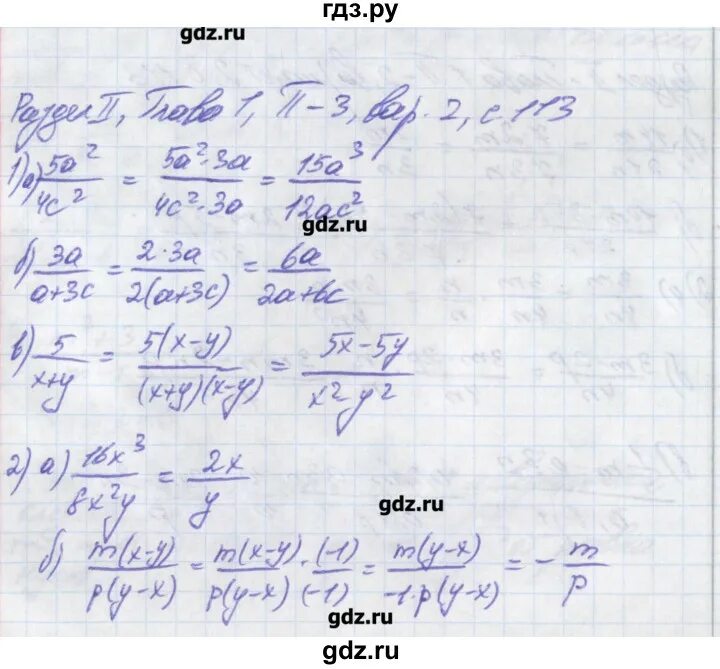 гдз.ру
gdz.ru
Раздел II, Глава 1, П-3, вар. 2, с. 113
1) а) 5a²/4c² = 5a²·3a/4c²·3a = 15a³/12ac²
gdz.ru
б) 3a/a+3c = 2·3a/2(a+3c) = 6a/2a+6c
в) 5/x+y = 5(x-y)/(x+y)(x-y) = 5x-5y/x²-y²
2) а) 16x³/8x²y = 2x/y
gdz.ru
б) m(x-y)/p(y-x) = m(x-y)/p(y-x) · (-1)/(-1) = m(y-x)/-1·p(y-x) = -m/p
gdz.ru
gdz.ru